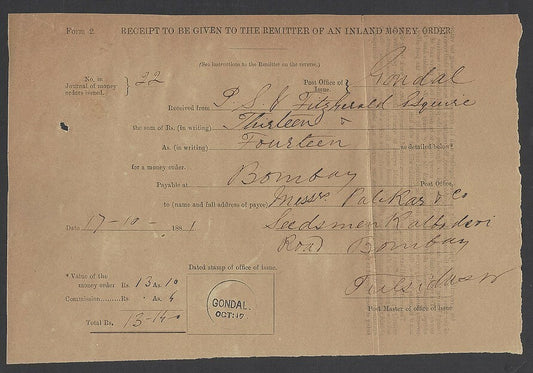 Form 2
RECEIPT TO BE GIVEN TO THE REMITTER OF AN INLAND MONEY ORDER
(See instructions to the Remitter on the reverse.)
No. in Journal of money orders issued. } 22 Post Office of Issue. } Gondal
Received from P. S. V Fitzgerald Esquire
the sum of Rs. (in writing) Thirteen &
As. (in writing) Fourteen as detailed below*
for a money order.
Payable at Bombay Post Office,
to (name and full address of payee) Messrs Patikar & Co
Date 17-10- 1881 Seedsmen Kalbadevi
Road Bombay
* Value of the money order Rs. 13 As. 10
Dated stamp of office of issue.
Tulsidas
Commission Rs. . As. 4
GONDAL.
OCT: 17
Post Master of office of issue
Total Rs. 13-14-0